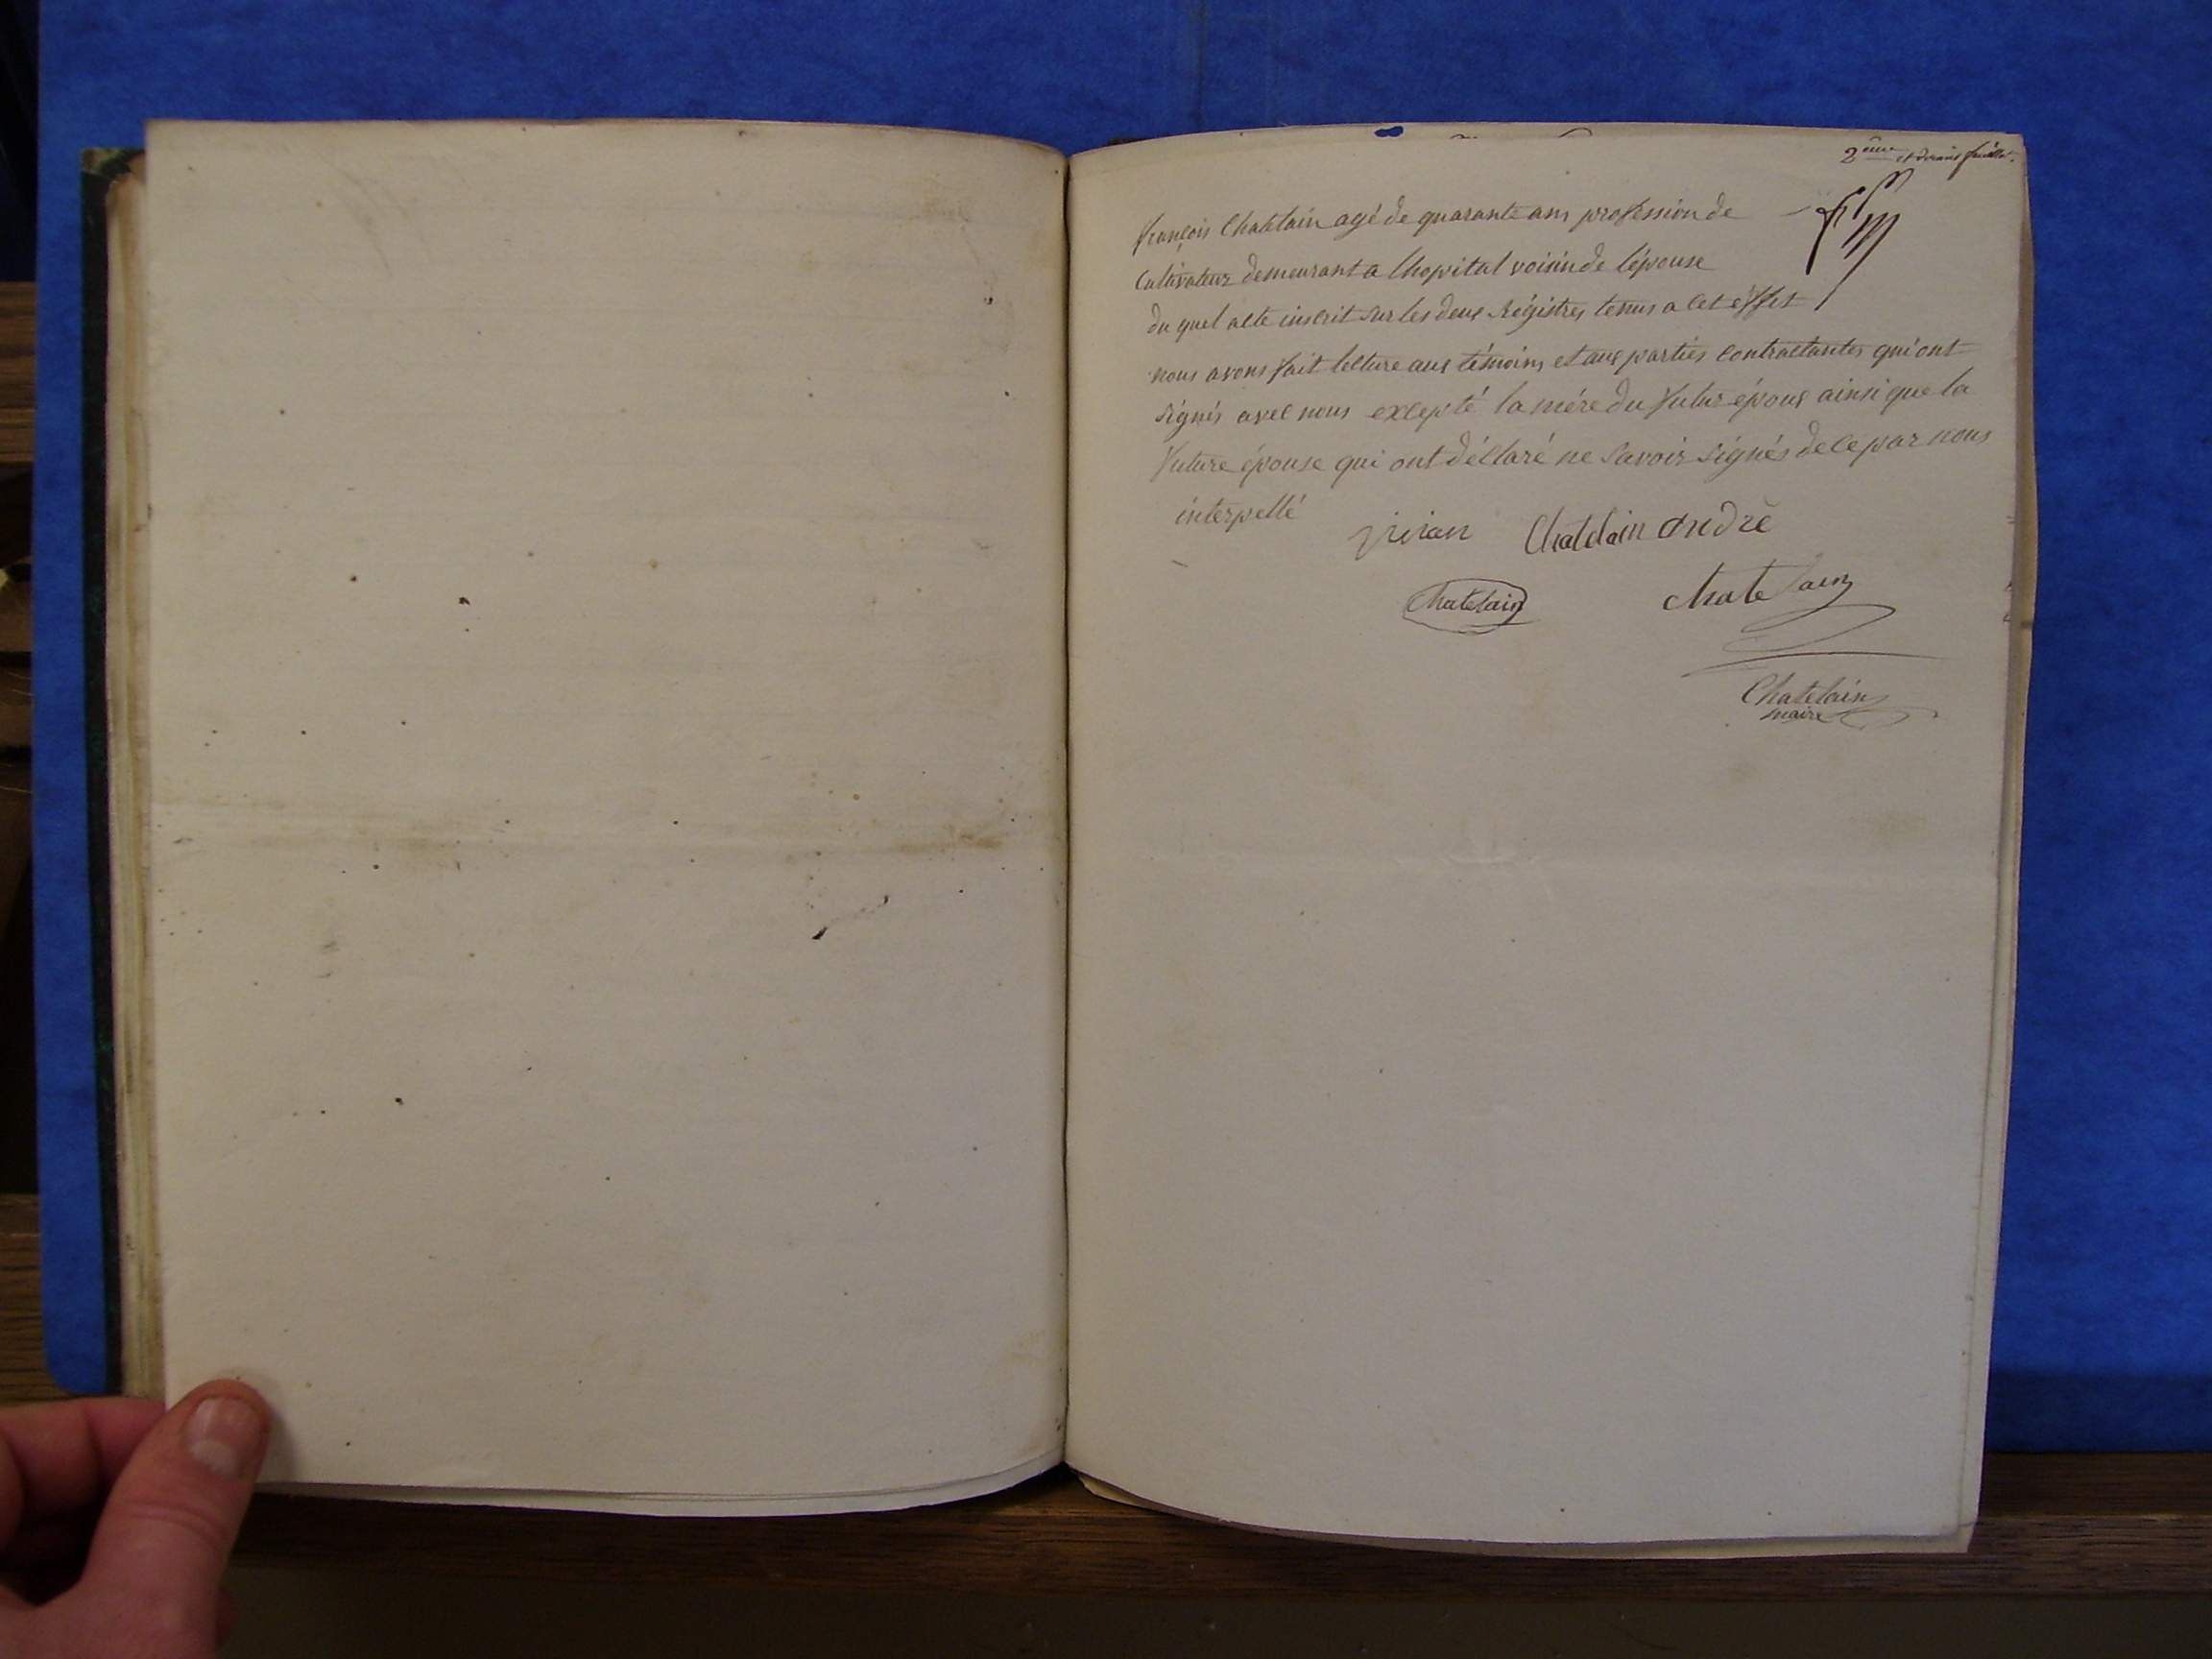 2ème et dernier feuillet.
françois Chatelain agé de quarante ans profession de
Cultivateur demeurant a lhopital voisin de lépouse
du quel acte inscrit sur les deux Régistres tenus a cet éffet
nous avons fait lecture aux témoins et aux parties contractantes qui ont
signés avec nous excepté la mére du futur époux ainsi que la
future épouse qui ont déclaré ne savoir signés de ce par nous
interpellé
vivian Chatelain andré
Chatelain Chatelain
Chatelain
maire